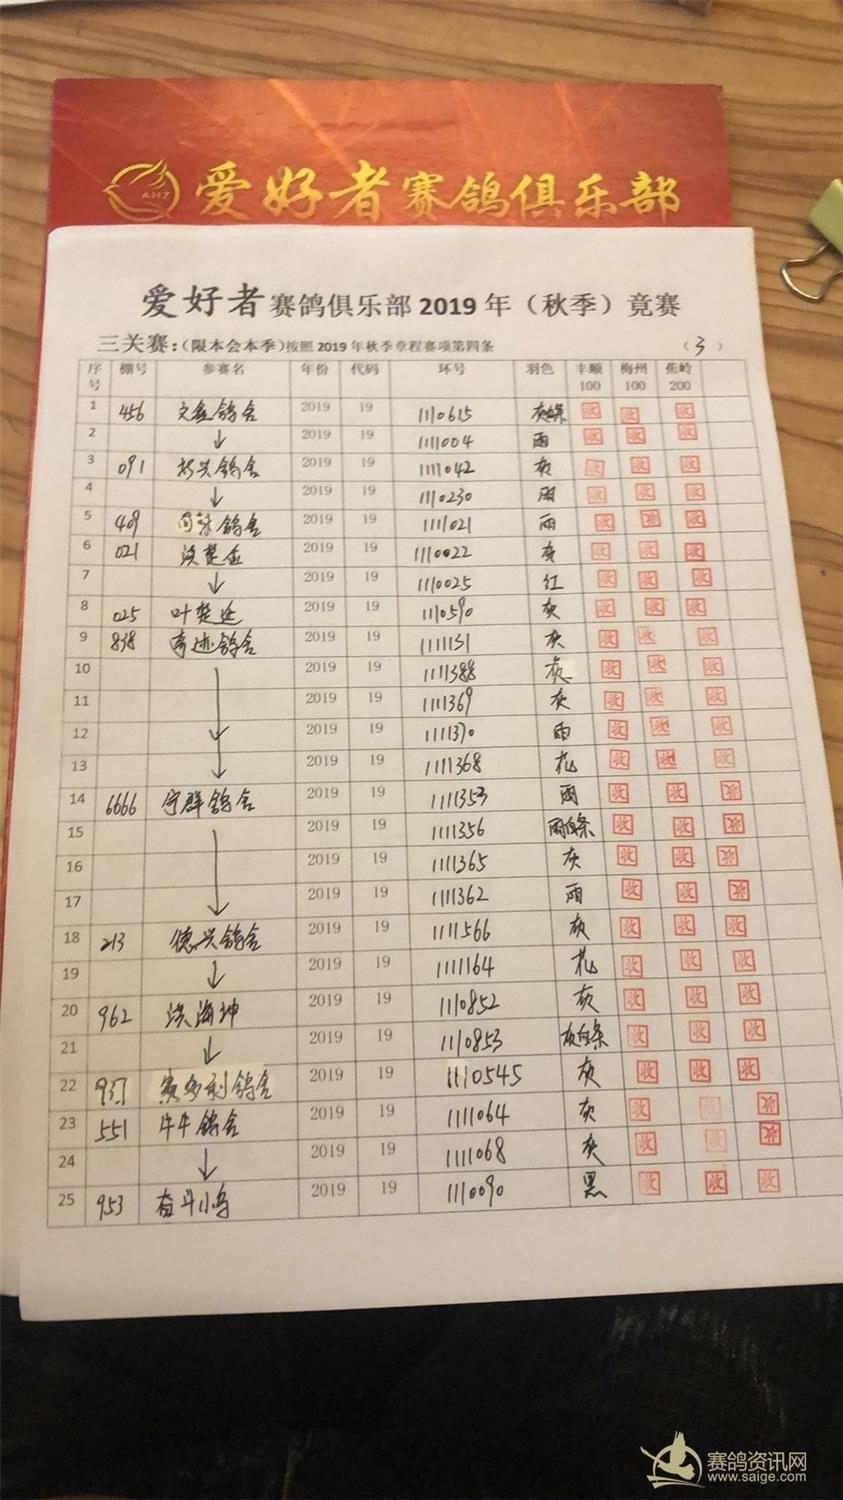 AHZ 爱好者赛鸽俱乐部
爱好者赛鸽俱乐部2019年（秋季）竟赛
三关赛：（限本会本季）按照2019年秋季章程赛项第四条 （3）
序号 棚号 参赛名 年份 代码 环号 羽色 丰顺100 梅州100 蕉岭200
1 456 文鑫鸽舍 2019 19 1110615 灰白条 收 收 收
2 ↓ 2019 19 1111004 雨 收 收 收
3 091 鸽舍 2019 19 1111042 灰 收 收 收
4 ↓ 2019 19 1110230 雨 收 收 收
5 409 鸽舍 2019 19 1111021 雨 收 收 收
6 021 洪楚 2019 19 1110022 灰 收 收 收
7 ↓ 2019 19 1110025 红 收 收 收
8 025 叶楚 2019 19 1110590 灰 收 收 收
9 838 奇迹鸽舍 2019 19 1111131 灰 收 收 收
10 2019 19 1111388 灰 收 收 收
11 2019 19 1111369 灰 收 收 收
12 2019 19 1111370 雨 收 收 收
13 ↓ 2019 19 1111368 花 收 收 收
14 6666 宇群鸽舍 2019 19 1111353 雨 收 收 收
15 2019 19 1111356 雨白条 收 收 收
16 2019 19 1111365 灰 收 收 收
17 ↓ 2019 19 1111362 雨 收 收 收
18 213 德兴鸽舍 2019 19 1111566 灰 收 收 收
19 ↓ 2019 19 1111164 花 收 收 收
20 962 洪海坤 2019 19 1110852 灰 收 收 收
21 ↓ 2019 19 1110853 灰白条 收 收 收
22 937 赛多利鸽舍 2019 19 1110545 灰 收 收 收
23 551 牛牛鸽舍 2019 19 1111064 灰 收 收 收
24 ↓ 2019 19 1111068 灰 收 收 收
25 953 奋斗小鸟 2019 19 1110090 黑 收 收 收
赛鸽资讯网
www.saige.com